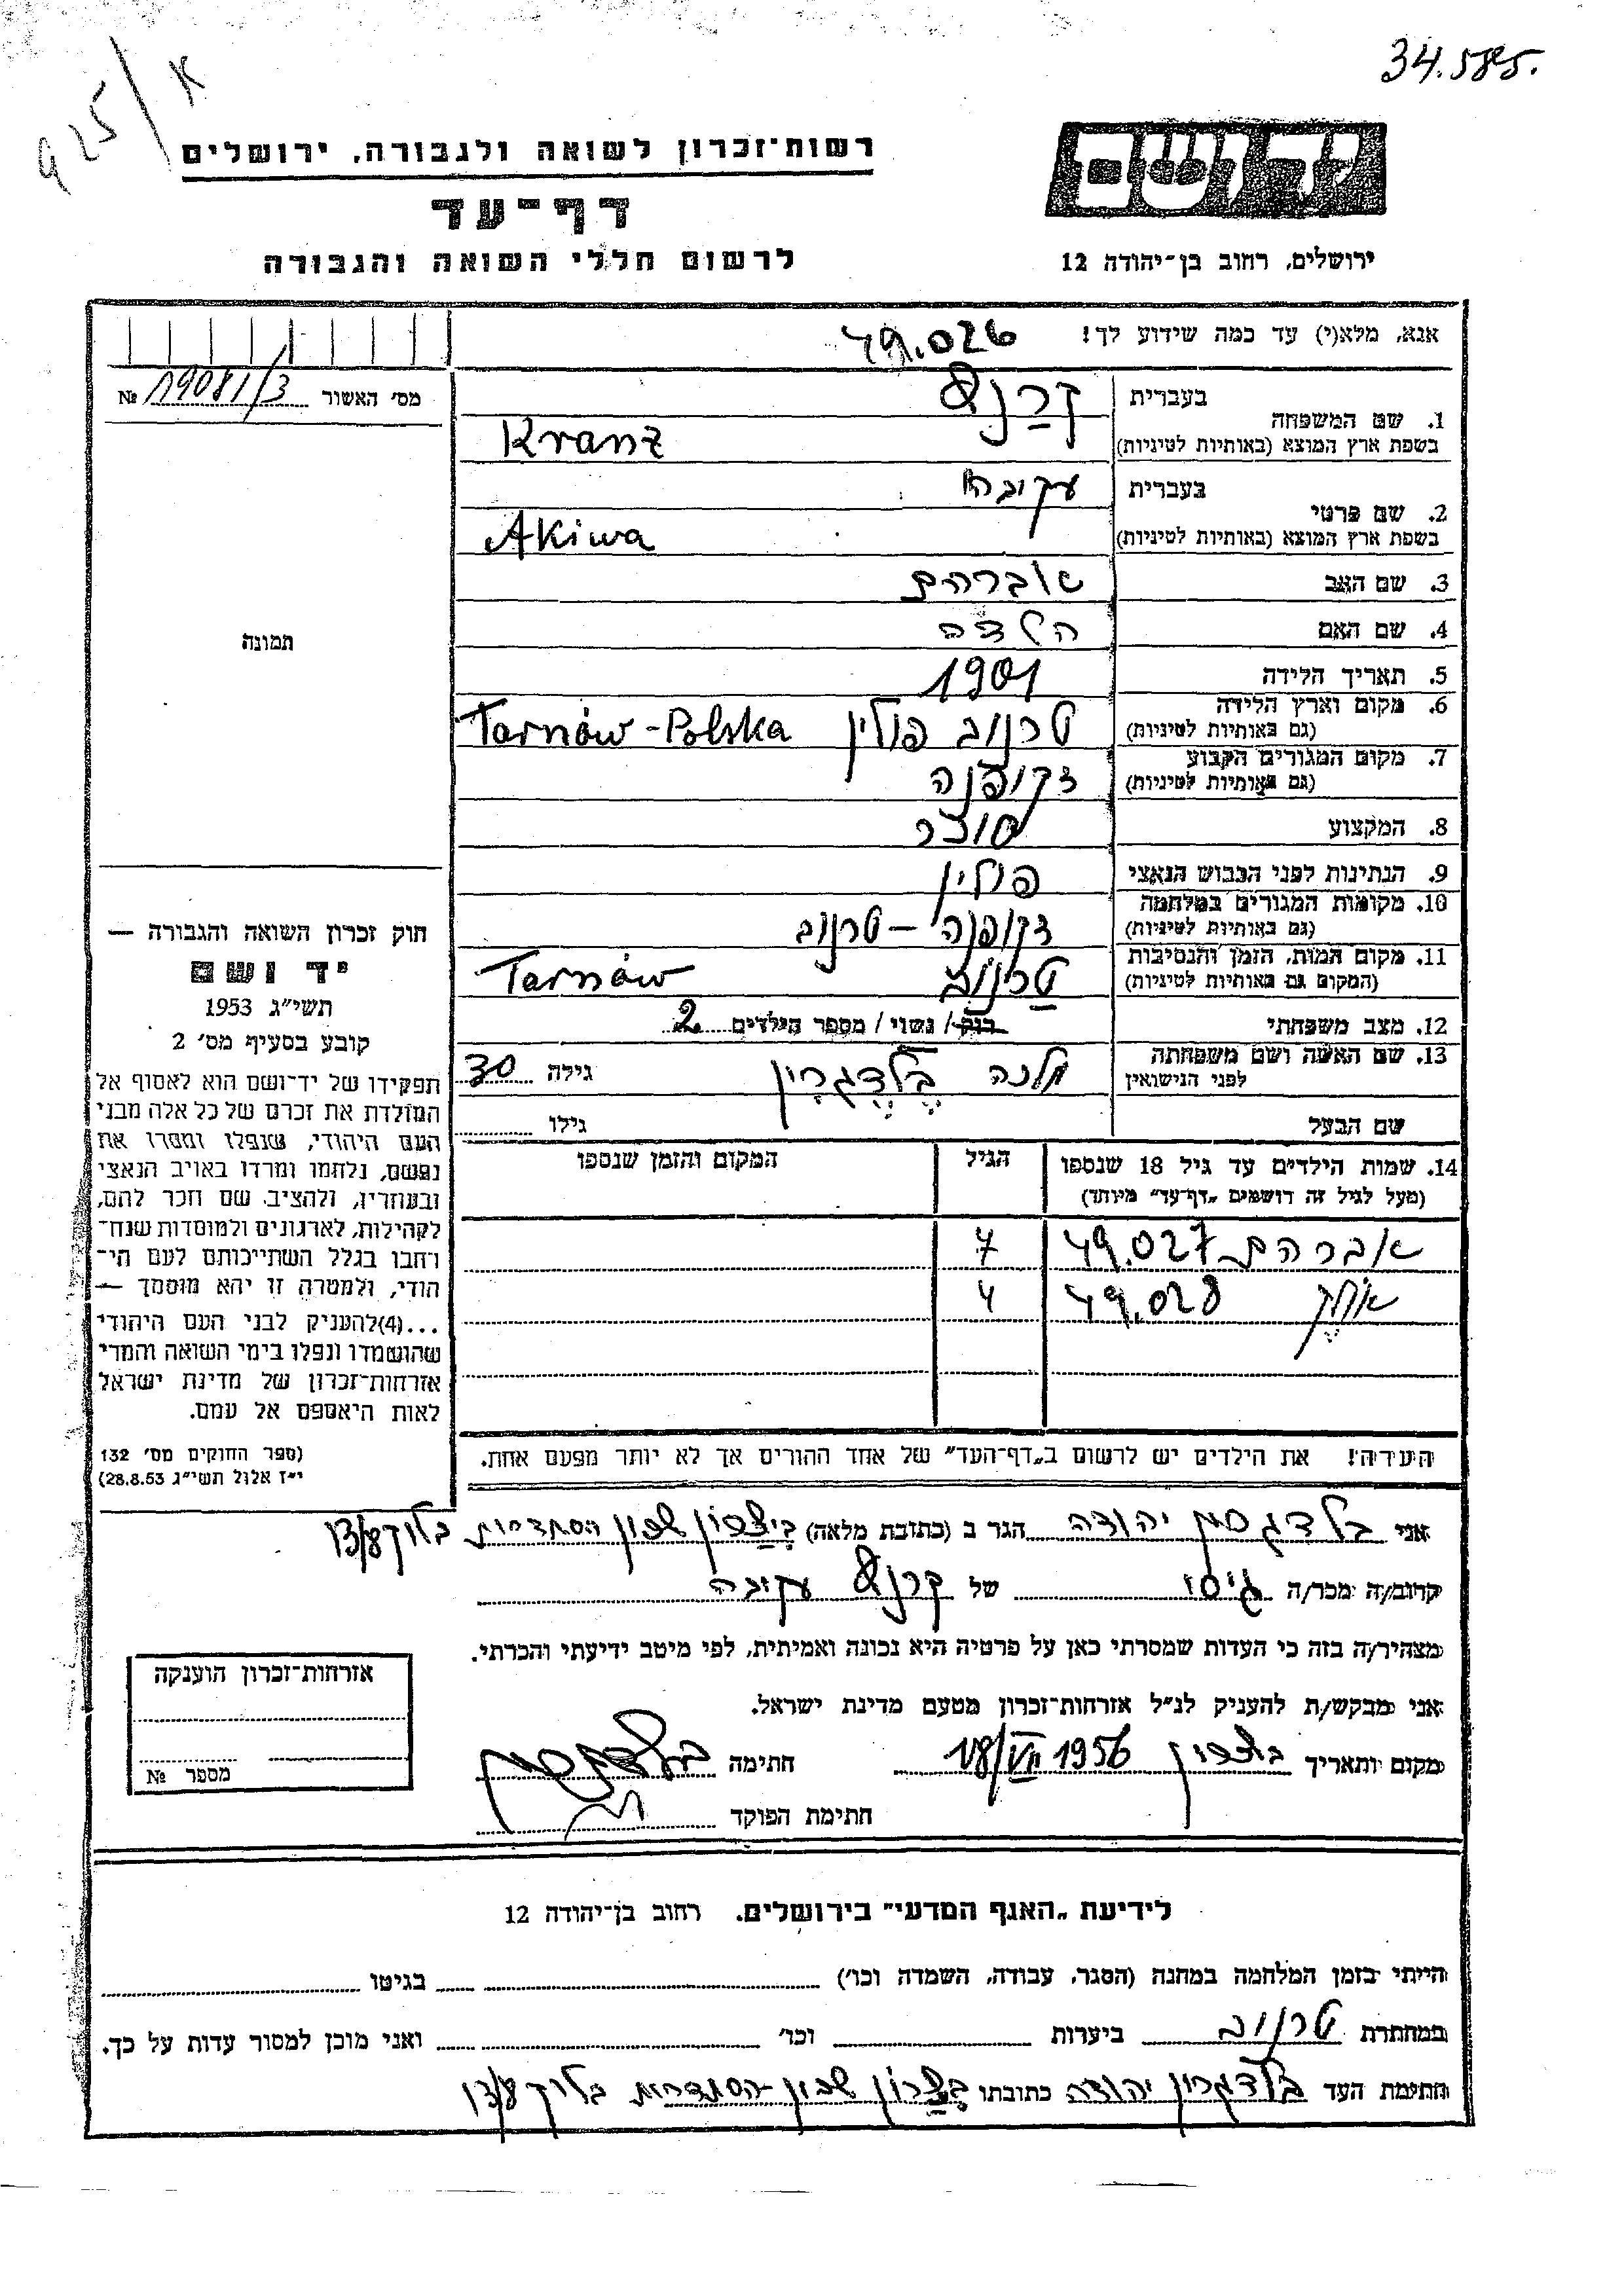 34.585.
925/K
רשות־זכרון לשואה ולגבורה, ירושלים
דף־עד
לרשום חללי השואה והגבורה
יד ושם
ירושלים, רחוב בן־יהודה 12
אנא, מלא(י) עד כמה שידוע לך!
49.026
מס' האשור № 19081/3
1. שם המשפחה
בעברית קרנץ
בשפת ארץ המוצא (באותיות לטיניות) Kranz
2. שם פרטי
בעברית עקיבה
בשפת ארץ המוצא (באותיות לטיניות) Akiwa
3. שם האב אברהם
4. שם האם הלדה
5. תאריך הלידה 1901
6. מקום וארץ הלידה
(גם באותיות לטיניות) טרנוב פולין Tarnów-Polska
7. מקום המגורים הקבוע
(גם באותיות לטיניות) זקופנה
8. המקצוע סוחר
9. הנתינות לפני הכבוש הנאצי פולין
10. מקומות המגורים במלחמה
(גם באותיות לטיניות) זקופנה - טרנוב
11. מקום המות, הזמן והנסיבות
(המקום גם באותיות לטיניות) טרנוב Tarnów
12. מצב משפחתי רווק / נשוי / מספר הילדים 2
13. שם האשה ושם משפחתה
לפני הנישואין גילה 30
שם הבעל גילו
14. שמות הילדים עד גיל 18 שנספו
(מעל לגיל זה רושמים „דף־עד" מיוחד)
הגיל
המקום והזמן שנספו
אברהם 49.027 7
49.028 4
הערה! את הילדים יש לרשום ב„דף־העד" של אחד ההורים אך לא יותר מפעם אחת.
תמונה
חוק זכרון השואה והגבורה —
יד ושם
תשי"ג 1953
קובע בסעיף מס' 2
תפקידו של יד־ושם הוא לאסוף אל
המולדת את זכרם של כל אלה מבני
העם היהודי, שנפלו ומסרו את
נפשם, נלחמו ומרדו באויב הנאצי
ובעוזריו, ולהציב שם וזכר להם,
לקהילות, לארגונים ולמוסדות שנח־
רחבו בגלל השתייכותם לעם הי־
הודי, ולמטרה זו יהא מוסמך —
...(4)להעניק לבני העם היהודי
שהושמדו ונפלו בימי השואה והמרי
אזרחות־זכרון של מדינת ישראל
לאות היאספם אל עמם.
(ספר החוקים מס' 132
י"ז אלול תשי"ג 28.8.53)
אני יהודה הגר ב (כתובת מלאה) ביצרון שכון הסתדרות בלוק
קרוב/ה מכר/ה גיסו של קרנץ עקיבה
מצהיר/ה בזה כי העדות שמסרתי כאן על פרטיה היא נכונה ואמיתית, לפי מיטב ידיעתי והכרתי.
אני מבקש/ת להעניק לנ"ל אזרחות־זכרון מטעם מדינת ישראל.
מקום ותאריך ביצרון 18/VII 1956 חתימה
חתימת הפוקד
אזרחות־זכרון הוענקה
מספר №
לידיעת „האגף המדעי" בירושלים. רחוב בן־יהודה 12
הייתי בזמן המלחמה במחנה (הסגר, עבודה, השמדה וכו') בגיטו
במחתרת טרנוב ביערות וכו' ואני מוכן למסור עדות על כך.
חתימת העד בלדגרין יהודה כתובתו ביצרון שכון הסתדרות בלוק